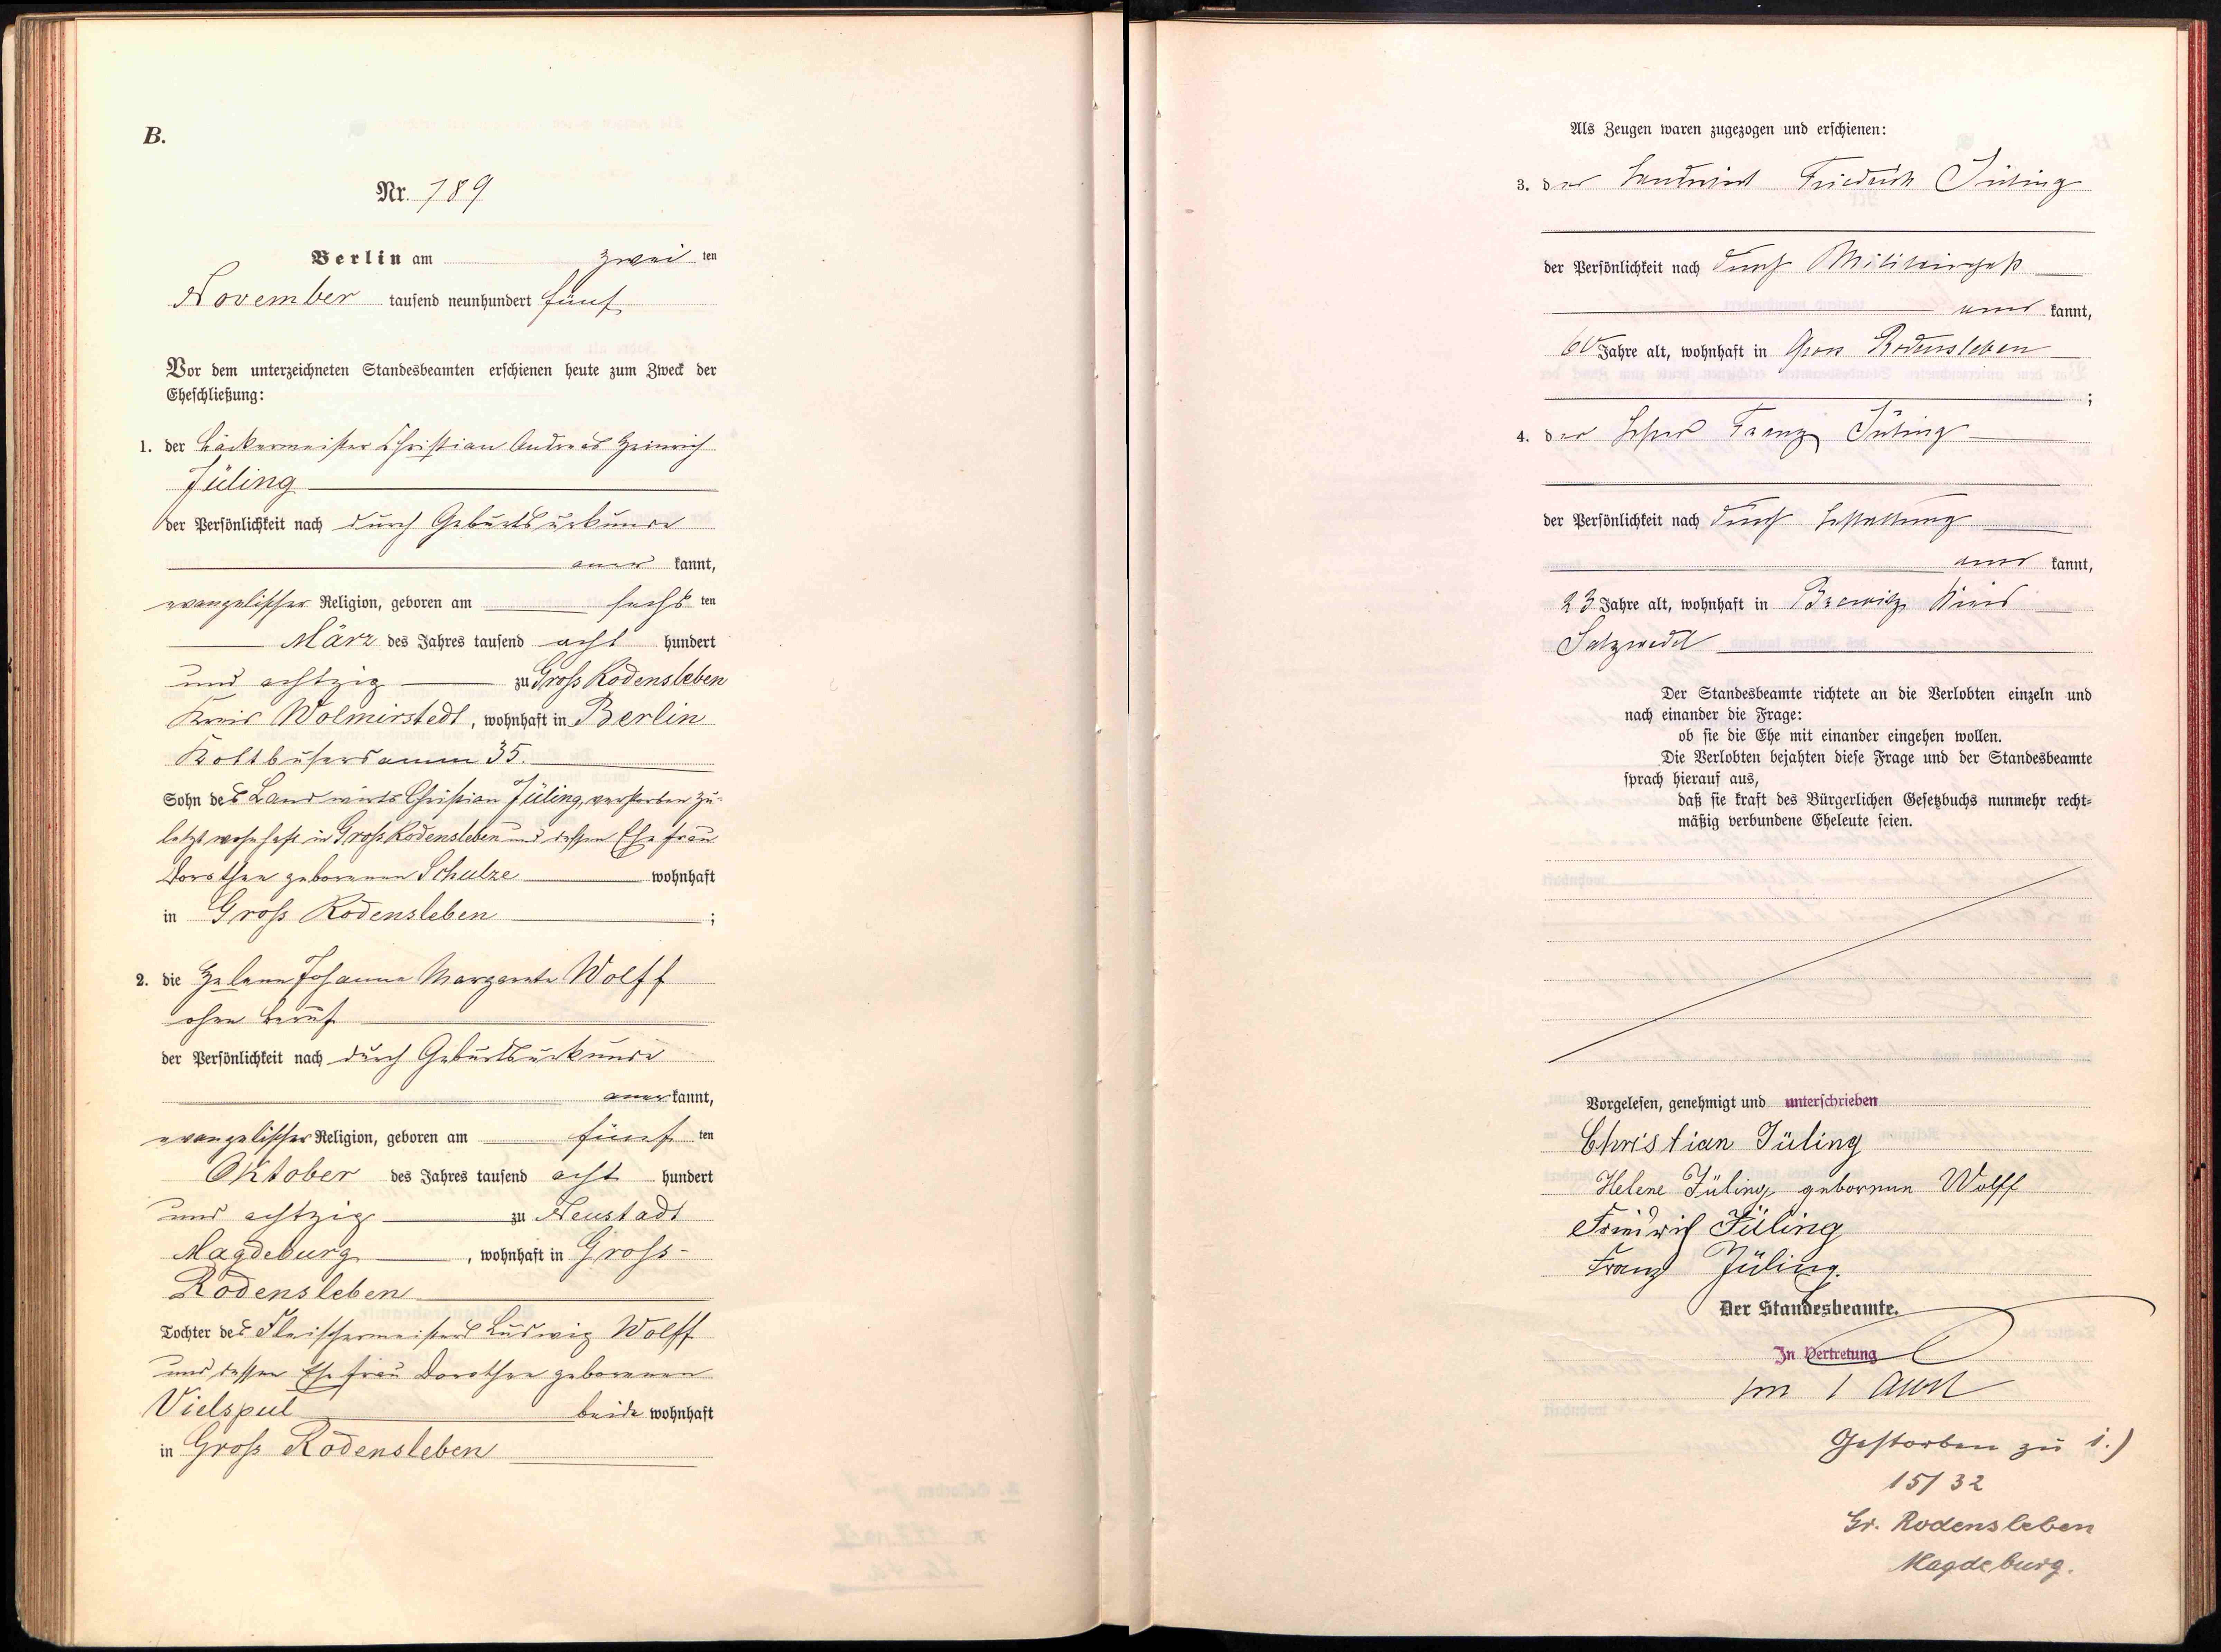 B.
Nr. 789
Berlin am zwei ten
November tausend neunhundert fünf
Vor dem unterzeichneten Standesbeamten erschienen heute zum Zweck der
Eheschließung:
1. der Bäckermeister Christian Andreas Heinrich
Jüling
der Persönlichkeit nach durch Geburtsurkunde
aner kannt,
evangelischer Religion, geboren am sechs ten
März des Jahres tausend acht hundert
und achtzig zu Groß Rodensleben
Kreis Wolmirstedt, wohnhaft in Berlin
Kottbuserdamm 35.
Sohn des Landwirts Christian Jüling, verstorben zu-
letzt wohnhaft in Groß Rodensleben und dessen Ehefrau
Dorothee geborenen Schulze wohnhaft
in Groß Rodensleben ;
2. die Helene Johanne Margarete Wolff
ohne Beruf
der Persönlichkeit nach durch Geburtsurkunde
aner kannt,
evangelischer Religion, geboren am fünf ten
Oktober des Jahres tausend acht hundert
und achtzig zu Neustadt
Magdeburg , wohnhaft in Groß-
Rodensleben
Tochter des Fleischermeisters Ludwig Wolff
und dessen Ehefrau Dorothee geborenen
Vielspul beide wohnhaft
in Groß Rodensleben
Als Zeugen waren zugezogen und erschienen:
3. der Landwirt Friedrich Jüling
der Persönlichkeit nach durch Militärpaß
aner kannt,
60 Jahre alt, wohnhaft in Gross Rodensleben
;
4. der Lehrer Franz Jüling
der Persönlichkeit nach durch
aner kannt,
23 Jahre alt, wohnhaft in Brewitz Kreis
Salzwedel
Der Standesbeamte richtete an die Verlobten einzeln und
nach einander die Frage:
ob sie die Ehe mit einander eingehen wollen.
Die Verlobten bejahten diese Frage und der Standesbeamte
sprach hierauf aus,
daß sie kraft des Bürgerlichen Gesetzbuchs nunmehr recht-
mäßig verbundene Eheleute seien.
Vorgelesen, genehmigt und unterschrieben
Christian Jüling
Helene Jüling geborenen Wolff
Friedrich Jüling
Franz Jüling.
Der Standesbeamte.
In Vertretung
Gestorben zu 1.)
15/32
Gr. Rodensleben
Magdeburg.